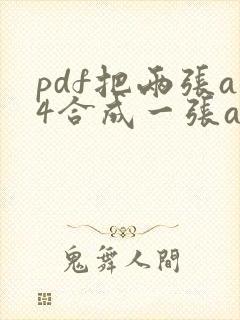 pdf把兩張a
4合成一張a
鬼舞人間